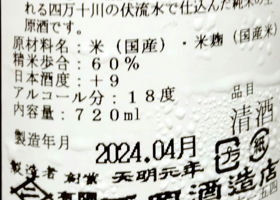 れる四万十川の伏流水で仕込んだ純米の生
原酒です。
原材料名：米（国産）・米麹（国産米）
精米歩合：６０％
日本酒度：＋９
アルコール分：１８度
内容量：７２０ml
品目
清酒
製造年月
2024.04月
製造者 創業 天明元年
酒造店